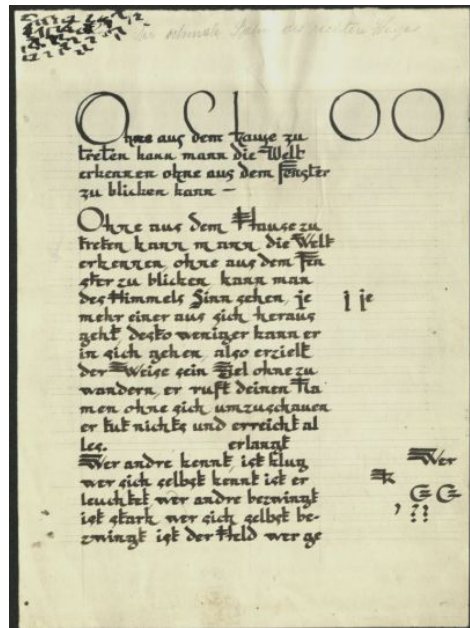 O C OO
Ohne aus dem Hause zu
treten kann mann die Welt
erkennen ohne aus dem Fenster
zu blicken kann –
Ohne aus dem Hause zu
treten kann mann die Welt
erkennen, ohne aus dem Fen
ster zu blicken kann man
des Himmels Sinn sehen, je
j je
mehr einer aus sich heraus
geht, desto weniger kann er
in sich gehen, also erzielt
der Weise sein Ziel ohne zu
wandern, er ruft deinen Na
men ohne sich umzuschauen
er tut nichts und erreicht al
les. erlangt
Wer andre kennt, ist klug
Wer
wer sich selbst kennt ist er
k
leuchtet wer andre bezwingt
G G
ist stark wer sich selbst be-
, ? ?
zwingt ist der Held wer ge